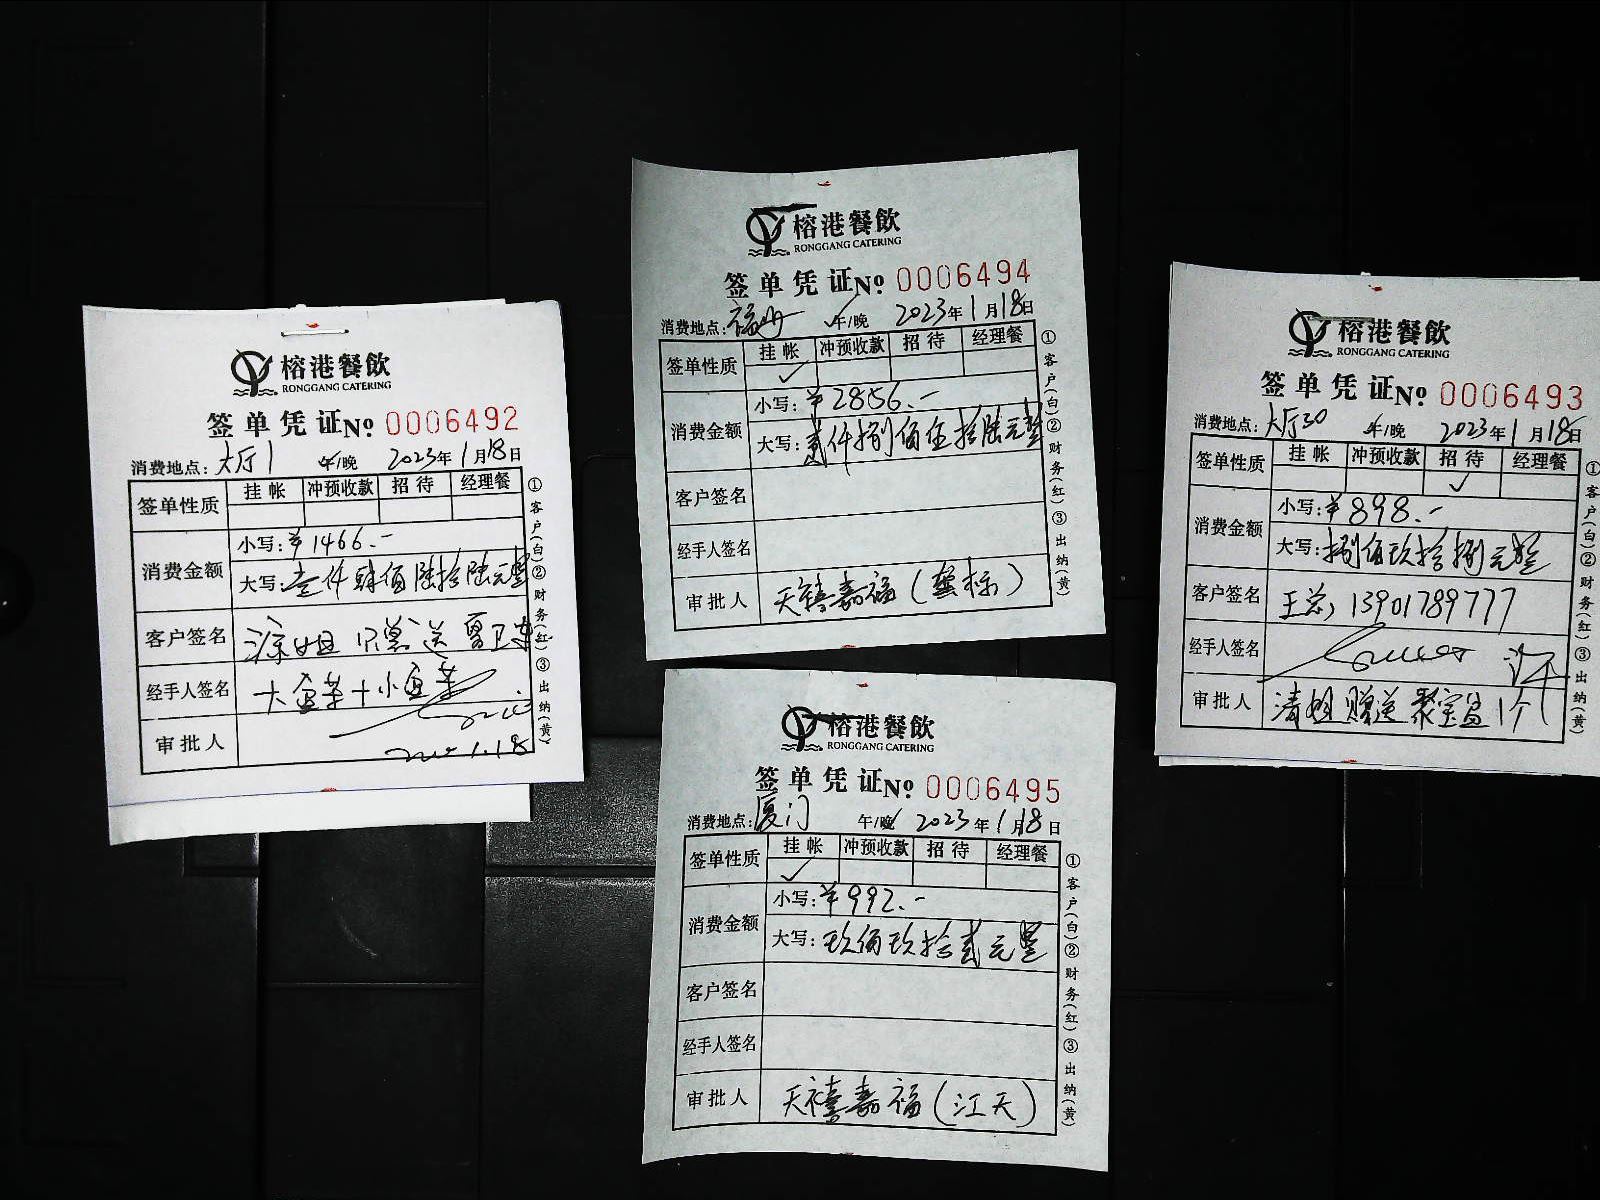 榕港餐飲
RONGGANG CATERING
签单凭证 № 0006492
消费地点: 大厅1 午/晚 2023年1月18日
签单性质 挂帐 冲预收款 招待 经理餐
消费金额 小写: ¥1466.-
大写: 壹仟肆佰陆拾陆元整
客户签名 涂姐
经手人签名
审批人 1.18
①客户(白)②财务(红)③出纳(黄)
榕港餐飲
RONGGANG CATERING
签单凭证 № 0006494
消费地点: 福州 午/晚 2023年1月18日
签单性质 挂帐 冲预收款 招待 经理餐
✓
消费金额 小写: ¥2856.-
大写: 贰仟捌佰伍拾陆元整
客户签名
经手人签名
审批人 天禧嘉福(
①客户(白)②财务(红)③出纳(黄)
榕港餐飲
RONGGANG CATERING
签单凭证 № 0006495
消费地点: 厦门 午/晚 2023年1月18日
签单性质 挂帐 冲预收款 招待 经理餐
✓
消费金额 小写: ¥992.-
大写: 玖佰玖拾贰元整
客户签名
经手人签名
审批人 天禧嘉福(江天)
①客户(白)②财务(红)③出纳(黄)
榕港餐飲
RONGGANG CATERING
签单凭证 № 0006493
消费地点: 大厅30 午/晚 2023年1月18日
签单性质 挂帐 冲预收款 招待 经理餐
✓
消费金额 小写: ¥898.-
大写: 捌佰玖拾捌元整
客户签名 王总, 13901789777
经手人签名
审批人 清姐 赠送 聚宝盆1个
①客户(白)②财务(红)③出纳(黄)